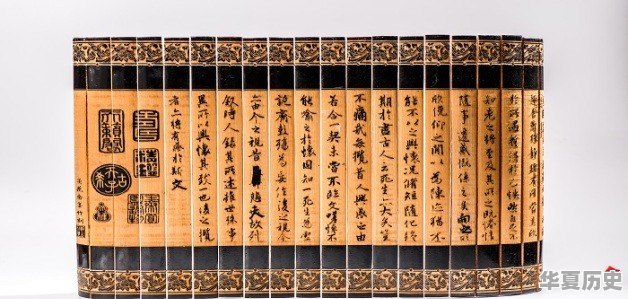 趣舍萬殊靜躁不同當其欣
於所遇蹔得於己怏然自足不
知老之將至及其所之既惓情
隨事遷感慨係之矣向之所
欣俛仰之間以為陳迹猶不
能不以之興懷況脩短隨化終
期於盡古人云死生亦大矣豈
不痛哉每攬昔人興感之由
若合一契未嘗不臨文嗟悼不
能喻之於懷固知一死生為虛
誕齊彭殤為妄作後之視今
亦由今之視昔悲夫故列
敘時人錄其所述雖世殊事
異所以興懷其致一也後之攬
者亦將有感於斯文
华夏历史